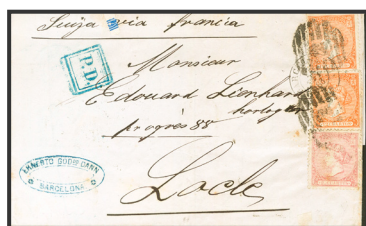 Suiza via francia
P.D.
Monsieur
Edouard Lienhard
horloger
progrès 88
Locle
ERNESTO GODEFDANN
BARCELONA